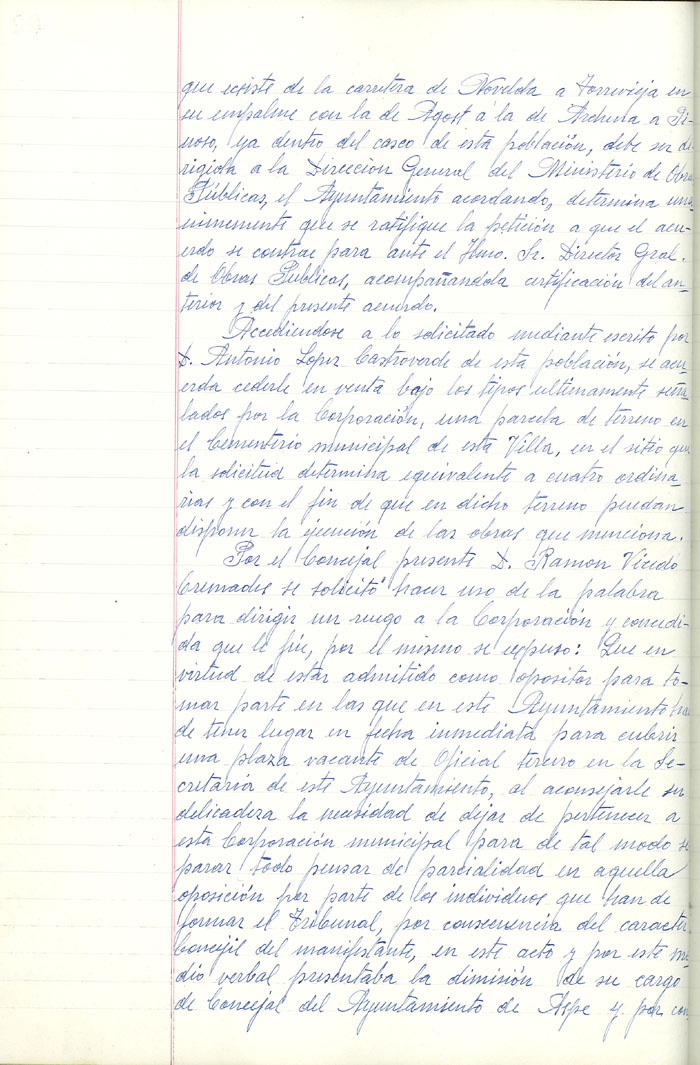 que existe de la carretera de Novelda a Torrevieja en
su empalme con la de Agost á la de Archena a Pi-
noso, ya dentro del casco de esta población, debe ser di
rigida a la Direccion General del Ministerio de Obras
Públicas, el Ayuntamiento acordando, determina una
nimemente que se ratifique la petición a que el acu-
erdo se contrae para ante el Ilmo. Sr. Director Gral.
de Obras Publicas, acompañandola certificación del an-
terior y del presente acuerdo.
Accediendose a lo solicitado mediante escrito por
D. Antonio Lopez Castroverde de esta población, se acu-
erda cederle en venta bajo los tipos ultimamente seña-
lados por la Corporación, una parcela de terreno en
el Cementerio municipal de esta Villa, en el sitio que
la solicitud determina equivalente a cuatro ordina-
rias y con el fin de que en dicho terreno puedan
disponer la ejecución de las obras que menciona.
Por el Concejal presente D. Ramon Vicedo
Cremades se solicitó hacer uso de la palabra
para dirigir un ruego a la Corporación y concedi-
da que le fué, por el mismo se expuso: Que en
virtud de estar admitido como opositor para to-
mar parte en las que en este Ayuntamiento han
de tener lugar en fecha inmediata para cubrir
una plaza vacante de Oficial tercero en la Se-
cretaria de este Ayuntamiento, al aconsejarle su
delicadeza la necesidad de dejar de pertenecer a
esta Corporación municipal para de tal modo se
parar todo pensar de parcialidad en aquella
oposición por parte de los individuos que han de
formar el Tribunal, por consecuencia del caracter
Concejil del manifestante, en este acto y por este me
dio verbal presentaba la dimisión de su cargo
de Concejal del Ayuntamiento de Aspe y por con